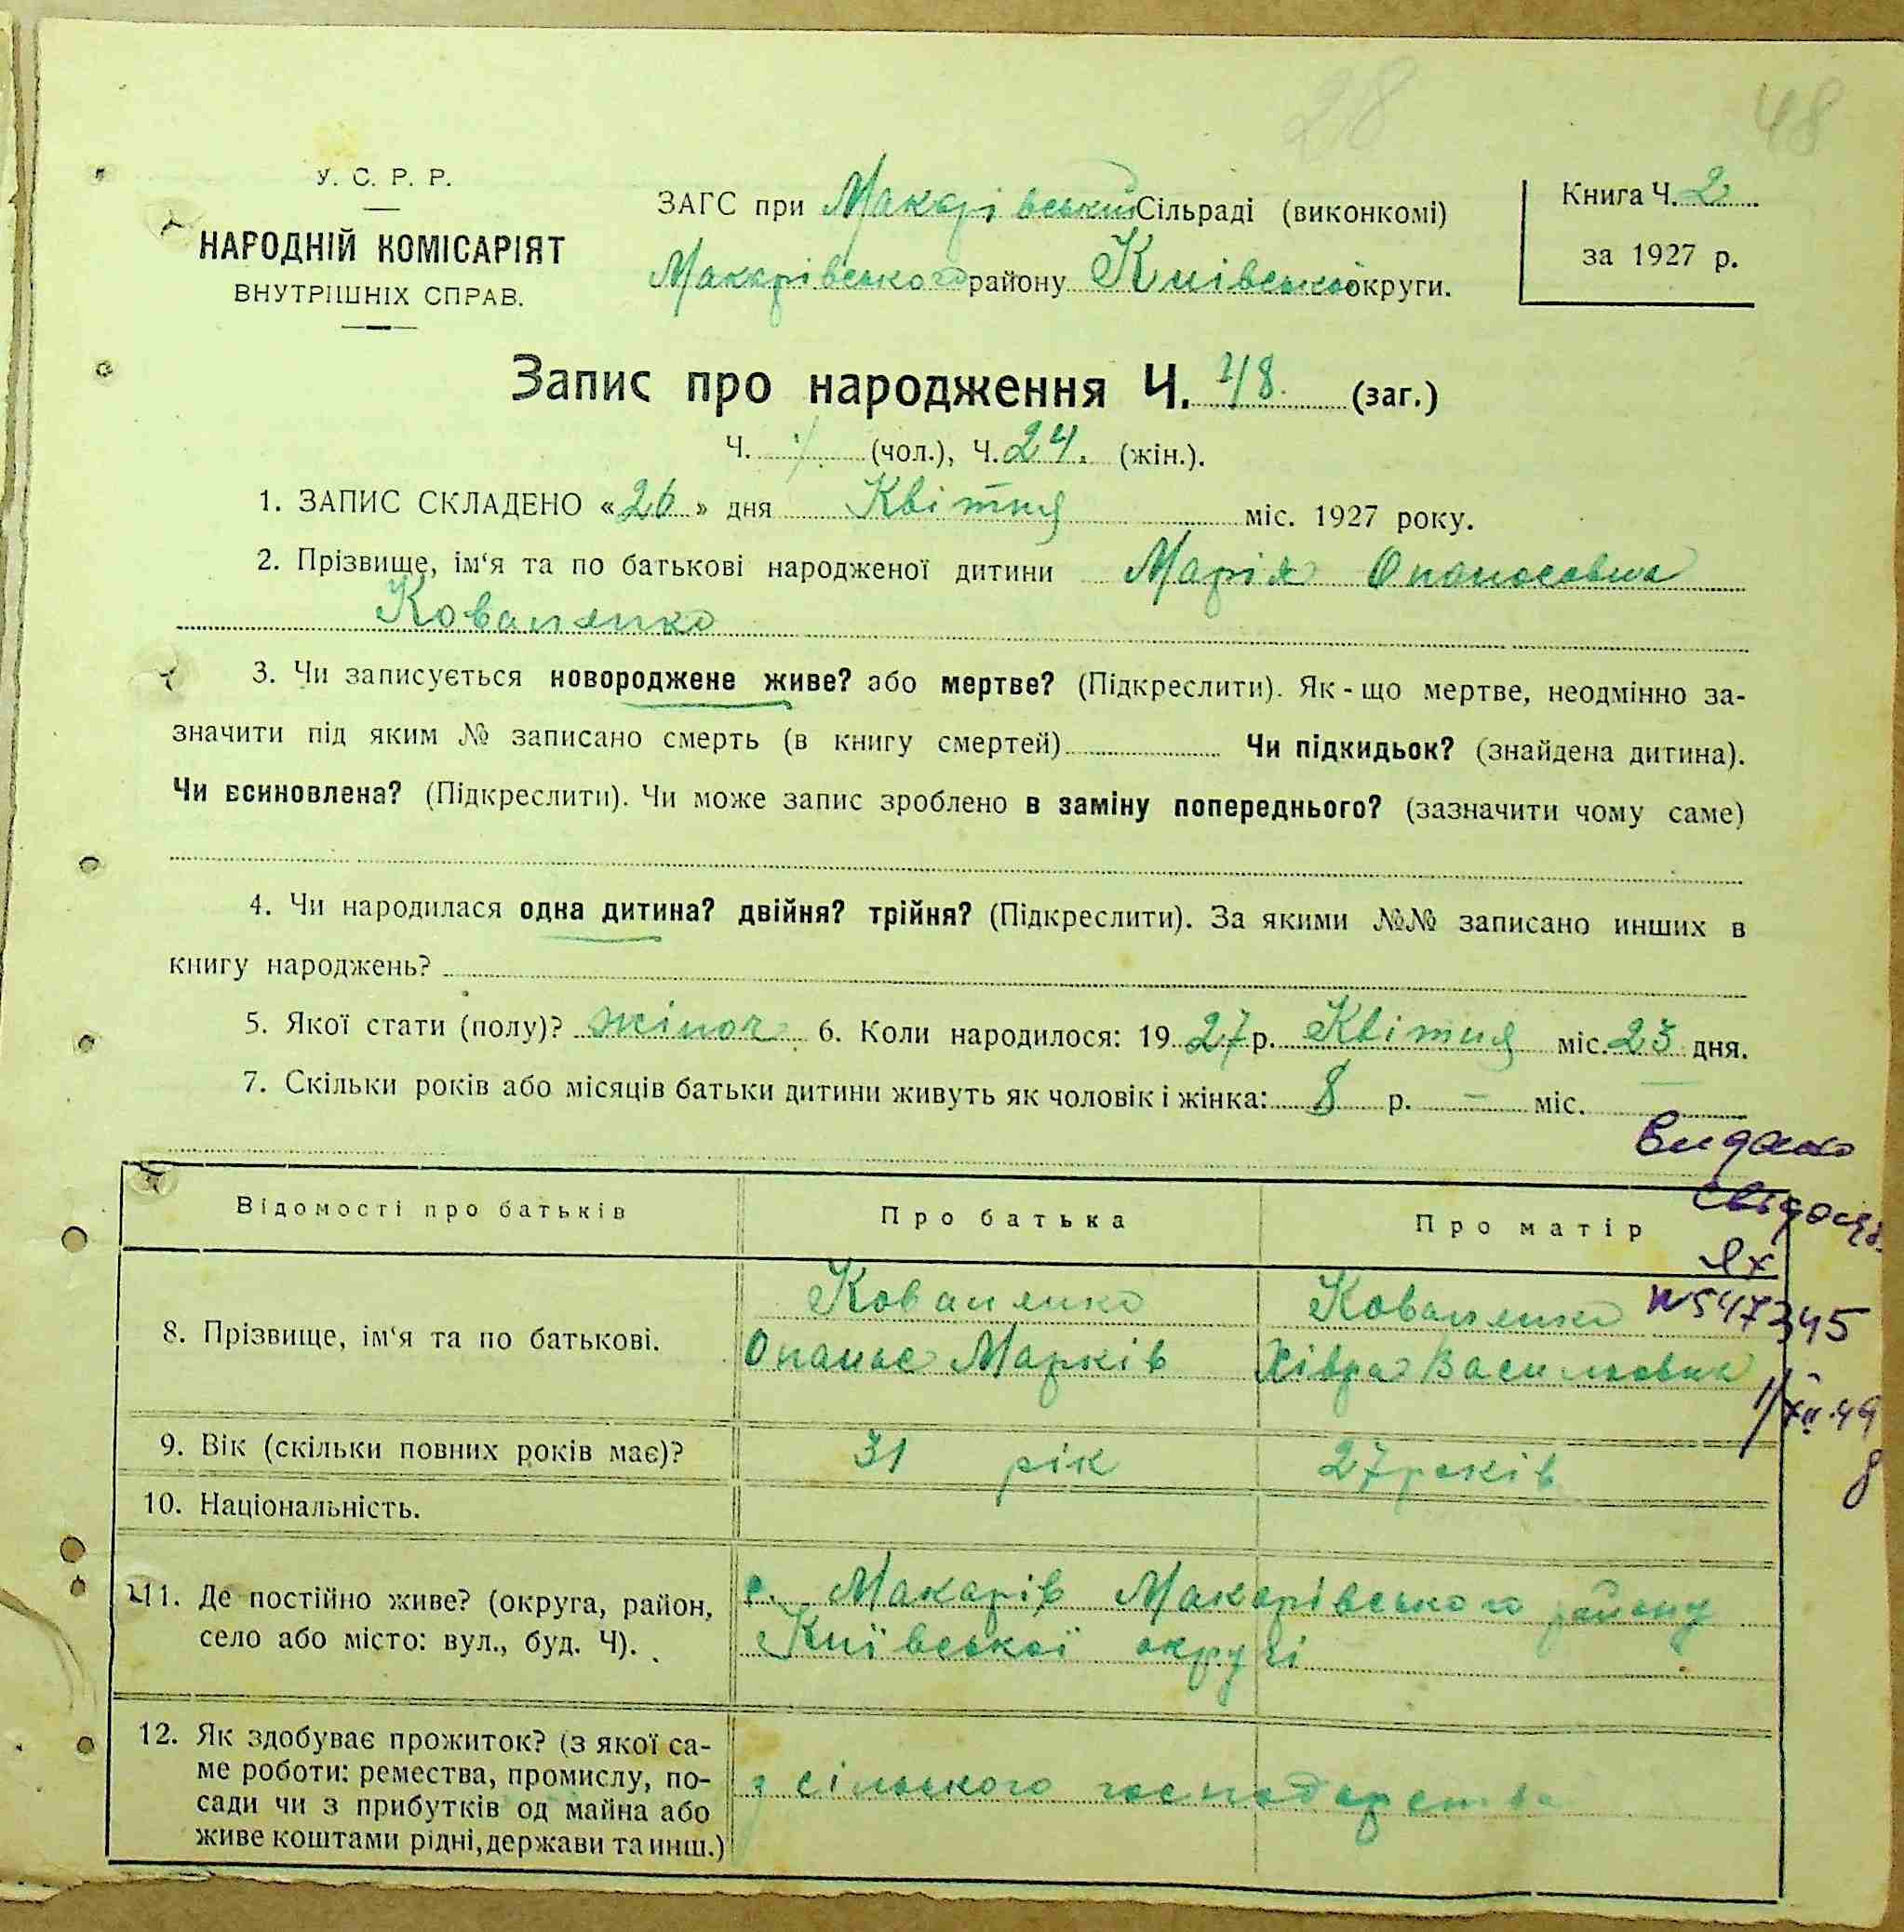 28
48
У. С. Р. Р.
НАРОДНІЙ КОМІСАРІЯТ
ВНУТРІШНІХ СПРАВ.
ЗАГС при Макарівській Сільраді (виконкомі)
Макарівського району Київської округи.
Книга Ч. 2
за 1927 р.
Запис про народження Ч. 48 (заг.)
Ч. (чол.), Ч. 24. (жін.).
1. ЗАПИС СКЛАДЕНО «26» дня Квітня міс. 1927 року.
2. Прізвище, ім‘я та по батькові народженої дитини Марія Опанасовна
Коваленко
3. Чи записується новороджене живе? або мертве? (Підкреслити). Як-що мертве, неодмінно за-
значити під яким № записано смерть (в книгу смертей) Чи підкидьок? (знайдена дитина).
Чи всиновлена? (Підкреслити). Чи може запис зроблено в заміну попереднього? (зазначити чому саме)
4. Чи народилася одна дитина? двійня? трійня? (Підкреслити). За якими №№ записано инших в
книгу народжень?
5. Якої стати (полу)? жіноч. 6. Коли народилося: 1927 р. Квітня міс. 23 дня.
7. Скільки років або місяців батьки дитини живуть як чоловік і жінка: 8 р. – міс.
Видано
свідоцт.
N 547345
1/XII.49
Відомості про батьків Про батька Про матір
8. Прізвище, ім‘я та по батькові.
Коваленко
Опанас Марків
Коваленко
Хівра Васильовна
9. Вік (скільки повних років має)? 31 рік 27 років
10. Національність.
11. Де постійно живе? (округа, район,
село або місто: вул., буд. Ч).
с. Макарів Макарівського району
Київської округі
12. Як здобуває прожиток? (з якої са-
ме роботи: ремества, промислу, по-
сади чи з прибутків од майна або
живе коштами рідні, держави та инш.)
з сільського господарства